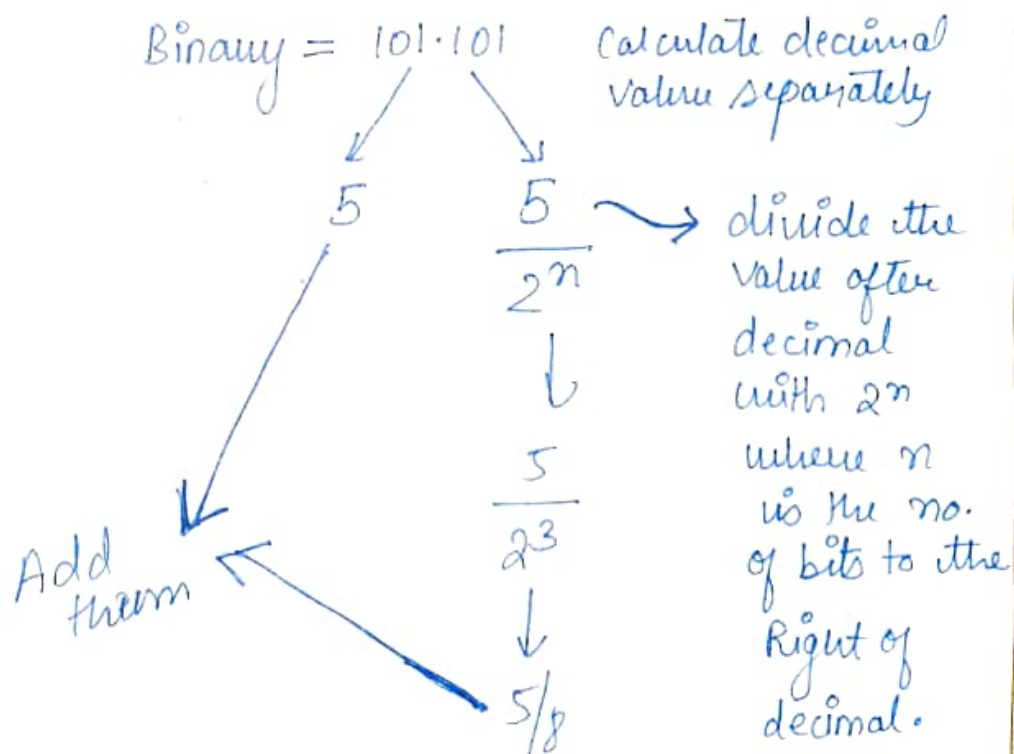 Binary = 101.101
Calculate decimal
value separately
5
5
2^n
divide the
value after
decimal
with 2^n
where n
is the no.
of bits to the
Right of
decimal.
5
2^3
5/8
Add
them